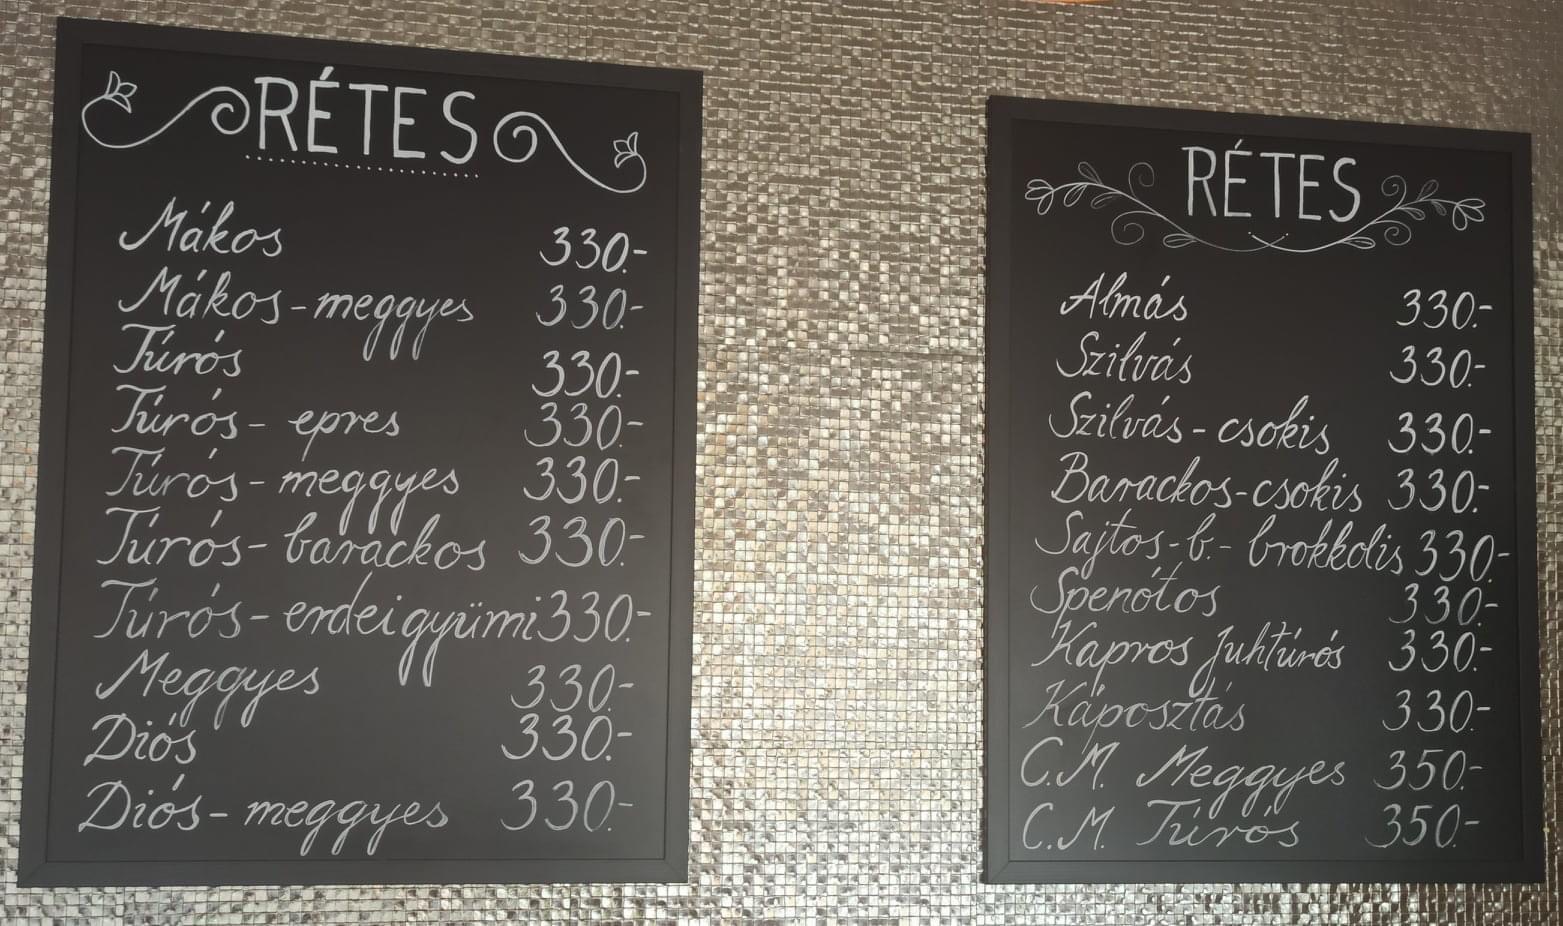 RÉTES
Mákos 330.-
Mákos-meggyes 330.-
Túrós 330.-
Túrós- epres 330.-
Túrós- meggyes 330.-
Túrós- barackos 330.-
Túrós- erdei gyümi 330.-
Meggyes 330.-
Diós 330.-
Diós- meggyes 330.-
RÉTES
Almás 330.-
Szilvás 330.-
Szilvás-csokis 330.-
Barackos-csokis 330.-
Sajtos-b.- brokkolis 330.-
Spenótos 330.-
Kapros Juhtúrós 330.-
Káposztás 330.-
C.M. Meggyes 350.-
C.M. Túrós 350.-